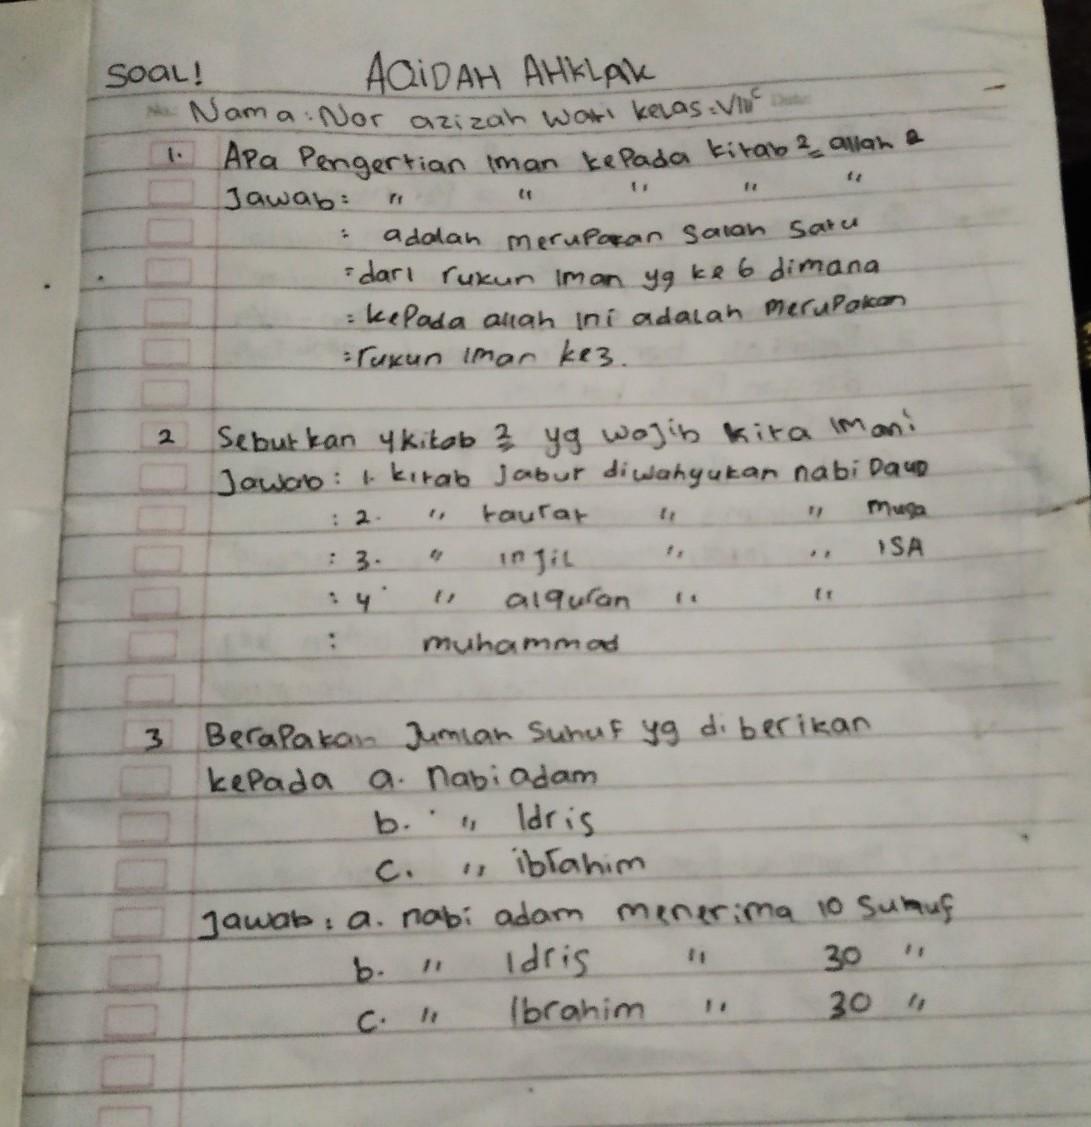 SOAL! AQIDAH AHKLAK
Nama: Nor azizah wati kelas: VIII C
1. Apa Pengertian Iman kepada kitab 2 allah ?
Jawab: " " " " "
: adalah merupakan salah satu
: dari rukun Iman yg ke 6 dimana
: kepada allah ini adalah merupakan
: rukun iman ke3.
2 Sebutkan 4 kitab 2 yg wajib kita imani
Jawab: 1. kitab Jabur diwahyukan nabi Daud
: 2. " taurat " " musa
: 3. " injil " " ISA
: 4 " alquran " "
: muhammad
3 Berapakah Jumlah Suhuf yg diberikan
kepada a. nabi adam
b. " Idris
c. " ibrahim
Jawab: a. nabi adam menerima 10 Suhuf
b. " Idris " 30 "
c. " Ibrahim " 30 "